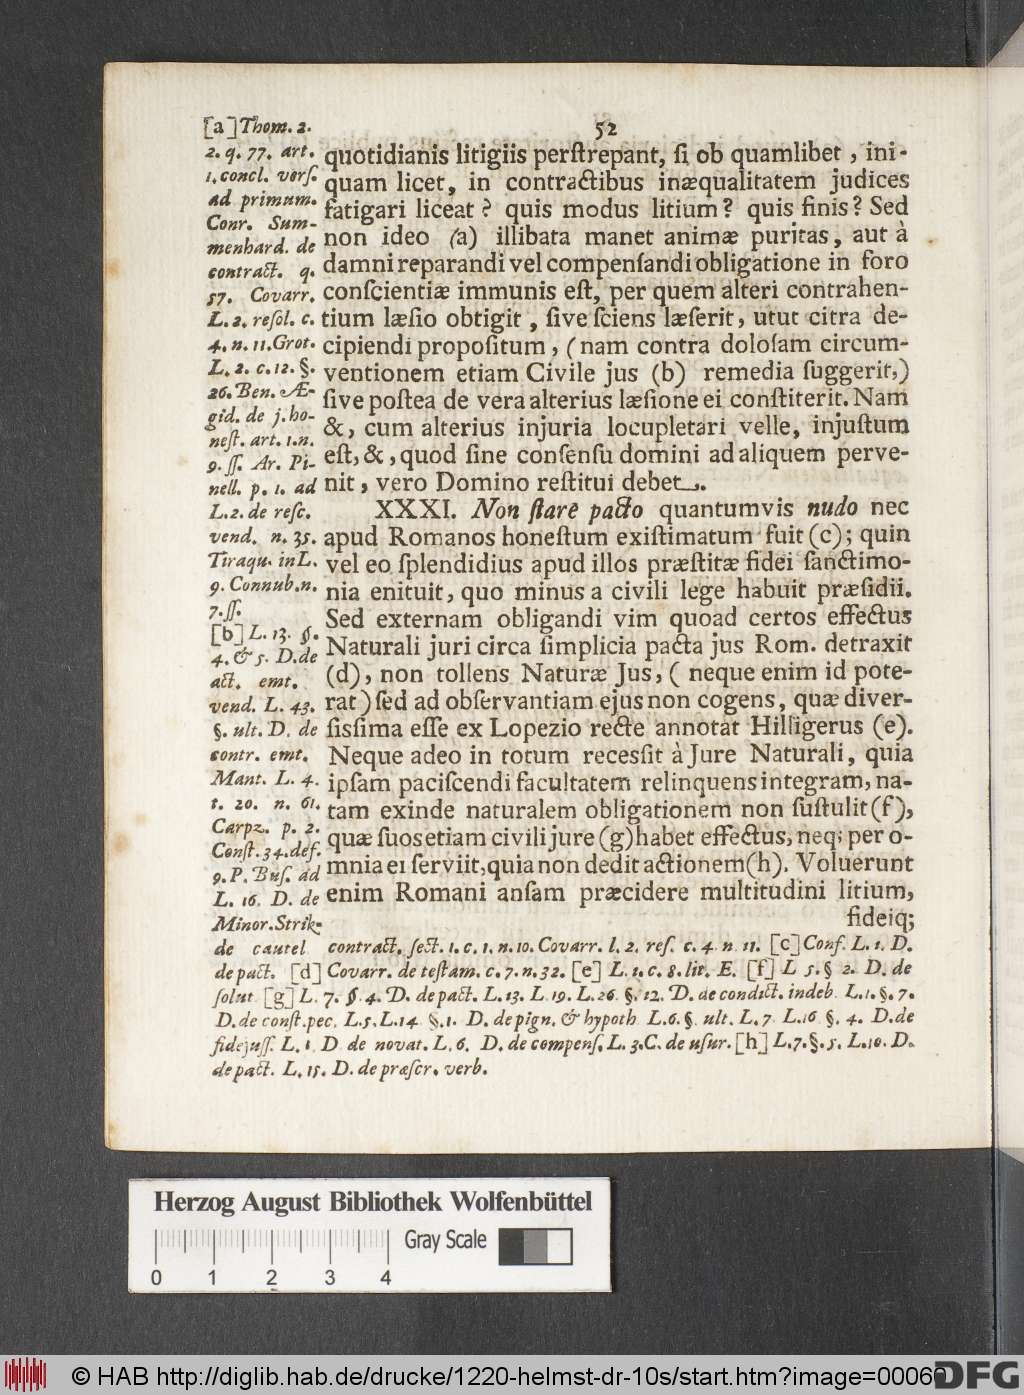 52
quotidianis litigiis perſtrepant, ſi ob quamlibet, ini-
quam licet, in contractibus inæqualitatem judices
fatigari liceat? quis modus litium? quis finis? Sed
non ideo (a) illibata manet animæ puritas, aut à
damni reparandi vel compenſandi obligatione in foro
conſcientiæ immunis eſt, per quem alteri contrahen-
tium læſio obtigit, ſive ſciens læſerit, utut citra de-
cipiendi propoſitum, (nam contra doloſam circum-
ventionem etiam Civile jus (b) remedia ſuggerit,)
ſive poſtea de vera alterius læſione ei conſtiterit. Nam
&, cum alterius injuria locupletari velle, injuſtum
eſt, &, quod ſine conſenſu domini ad aliquem perve-
nit, vero Domino reſtitui debet.
XXXI. Non ſtare pacto quantumvis nudo nec
apud Romanos honeſtum exiſtimatum fuit (c); quin
vel eo ſplendidius apud illos præſtitæ fidei ſanctimo-
nia enituit, quo minus a civili lege habuit præſidii.
Sed externam obligandi vim quoad certos effectus
Naturali juri circa ſimplicia pacta jus Rom. detraxit
(d), non tollens Naturæ Jus, (neque enim id pote-
rat) ſed ad obſervantiam ejus non cogens, quæ diver-
ſiſsima eſſe ex Lopezio recte annotat Hilligerus (e).
Neque adeo in totum receſſit à Jure Naturali, quia
ipſam paciſcendi facultatem relinquens integram, na-
tam exinde naturalem obligationem non ſuſtulit (f),
quæ ſuos etiam civili jure (g) habet effectus, neq; per o-
mnia ei ſerviit, quia non dedit actionem (h). Voluerunt
enim Romani anſam præcidere multitudini litium,
fideiq;
[a] Thom. 2.
2. q. 77. art.
1. concl. verſ.
ad primum.
Conr. Sum-
menhard. de
contract. q.
57. Covarr.
L. 2. reſol. c.
4. n. 11. Grot.
L. 2. c. 12. §.
26. Ben. Æ-
gid. de j. ho-
neſt. art. 1. n.
9. ſſ. Ar. Pi-
nell. p. 1. ad
L. 2. de reſc.
vend. n. 35.
Tiraqu. in L.
9. Connub. n.
7. ſſ.
[b] L. 13. §.
4. & 5. D. de
act. emt.
vend. L. 43.
§. ult. D. de
contr. emt.
Mant. L. 4.
t. 20. n. 61.
Carpz. p. 2.
Conſt. 34. def.
9. P. Buſ. ad
L. 16. D. de
Minor. Strik.
de cautel contract. ſect. 1. c. 1. n. 10. Covarr. l. 2. reſ. c. 4. n. 11. [c] Conf. L. 1. D.
de pact. [d] Covarr. de teſtam. c. 7. n. 32. [e] L. 1. c. 8. lit. E. [f] L 5. § 2. D. de
ſolut [g] L. 7. §. 4. D. de pact. L. 13. L 19. L. 26 §. 12. D. de condict. indeb. L. 1. §. 7.
D. de conſt. pec. L. 5. L. 14 §. 1. D. de pign. & hypoth L. 6. §. ult. L. 7 L. 16 §. 4. D. de
fidejuſſ. L. 1 D de novat. L. 6. D. de compenſ. L. 3. C. de uſur. [h] L. 7. §. 5. L. 10. D.
de pact. L. 15. D. de præſcr. verb.
Herzog August Bibliothek Wolfenbüttel
Gray Scale
0 1 2 3 4
© HAB http://diglib.hab.de/drucke/1220-helmst-dr-10s/start.htm?image=00060
DFG